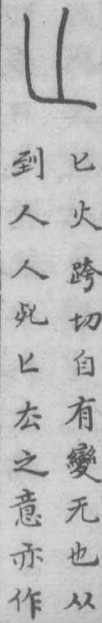 𠤎
匕火跨切自有變无也从
到人人死匕厺之意亦作